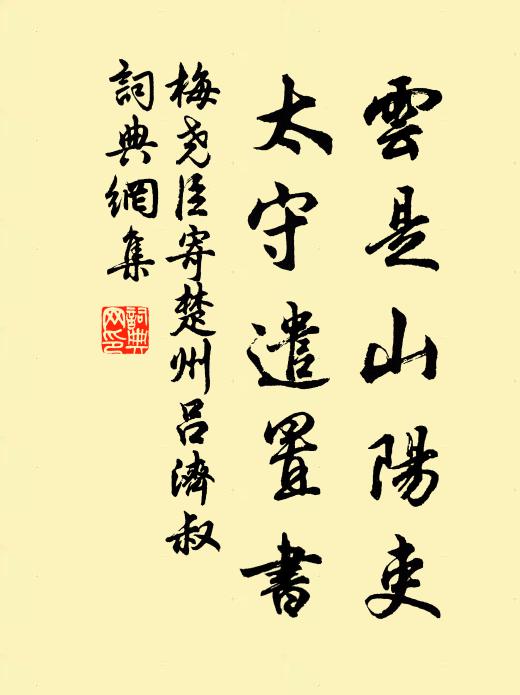 雲是山陽吏
太守遣置書
梅尧臣寄楚州吕濟叔
詞典網集
詞典网印